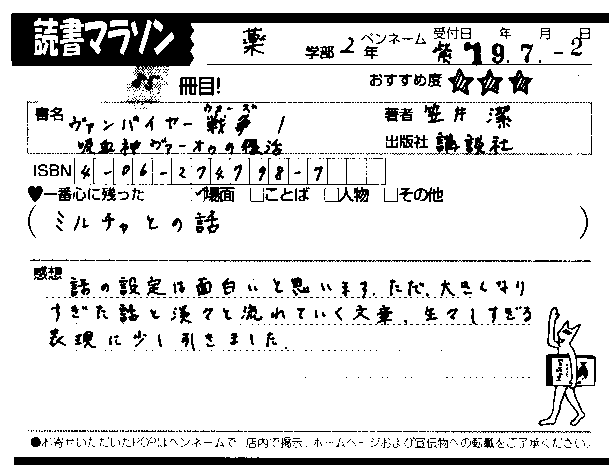 読書マラソン
薬 学部 2年 ペンネーム 紫 受付日 年 月 日 '19.7.-2
25 冊目! おすすめ度 ☆☆☆
書名 ヴァンパイヤー戦争 ウォーズ 1 著者 笠井 潔
吸血神ヴァーオゥの復活 出版社 講談社
ISBN 4-06-274798-7
♥一番心に残った ☑場面 □ことば □人物 □その他
(ミルチャとの話)
感想 話の設定は面白いと思います。ただ、大きくなり
すぎた話と淡々と流れていく文章、生々しすぎる
表現に少し引きました。
●お寄せいただいたPOPはペンネームで、店内で掲示、ホームページおよび宣伝物への転載をご了承ください。